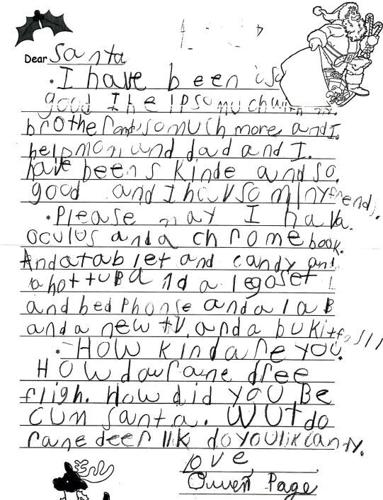 Dear Santa
• I have been so
good I helpsomuch with my
brother andsomuch more and I.
help mom and dad and I.
have been s kinde and so.
good and I hav so miny friends.
• Please may I hava
oculus anda chromebook.
Andatablet and candy and
a hottub and a legoset
and hedphonse anda lab
anda new tv. and a bukit
• HOW kind are you.
HOW do rane dree
fligh. How did you Be
cum santa. Wut do
rane deer lik do you lik candy.
love
Page